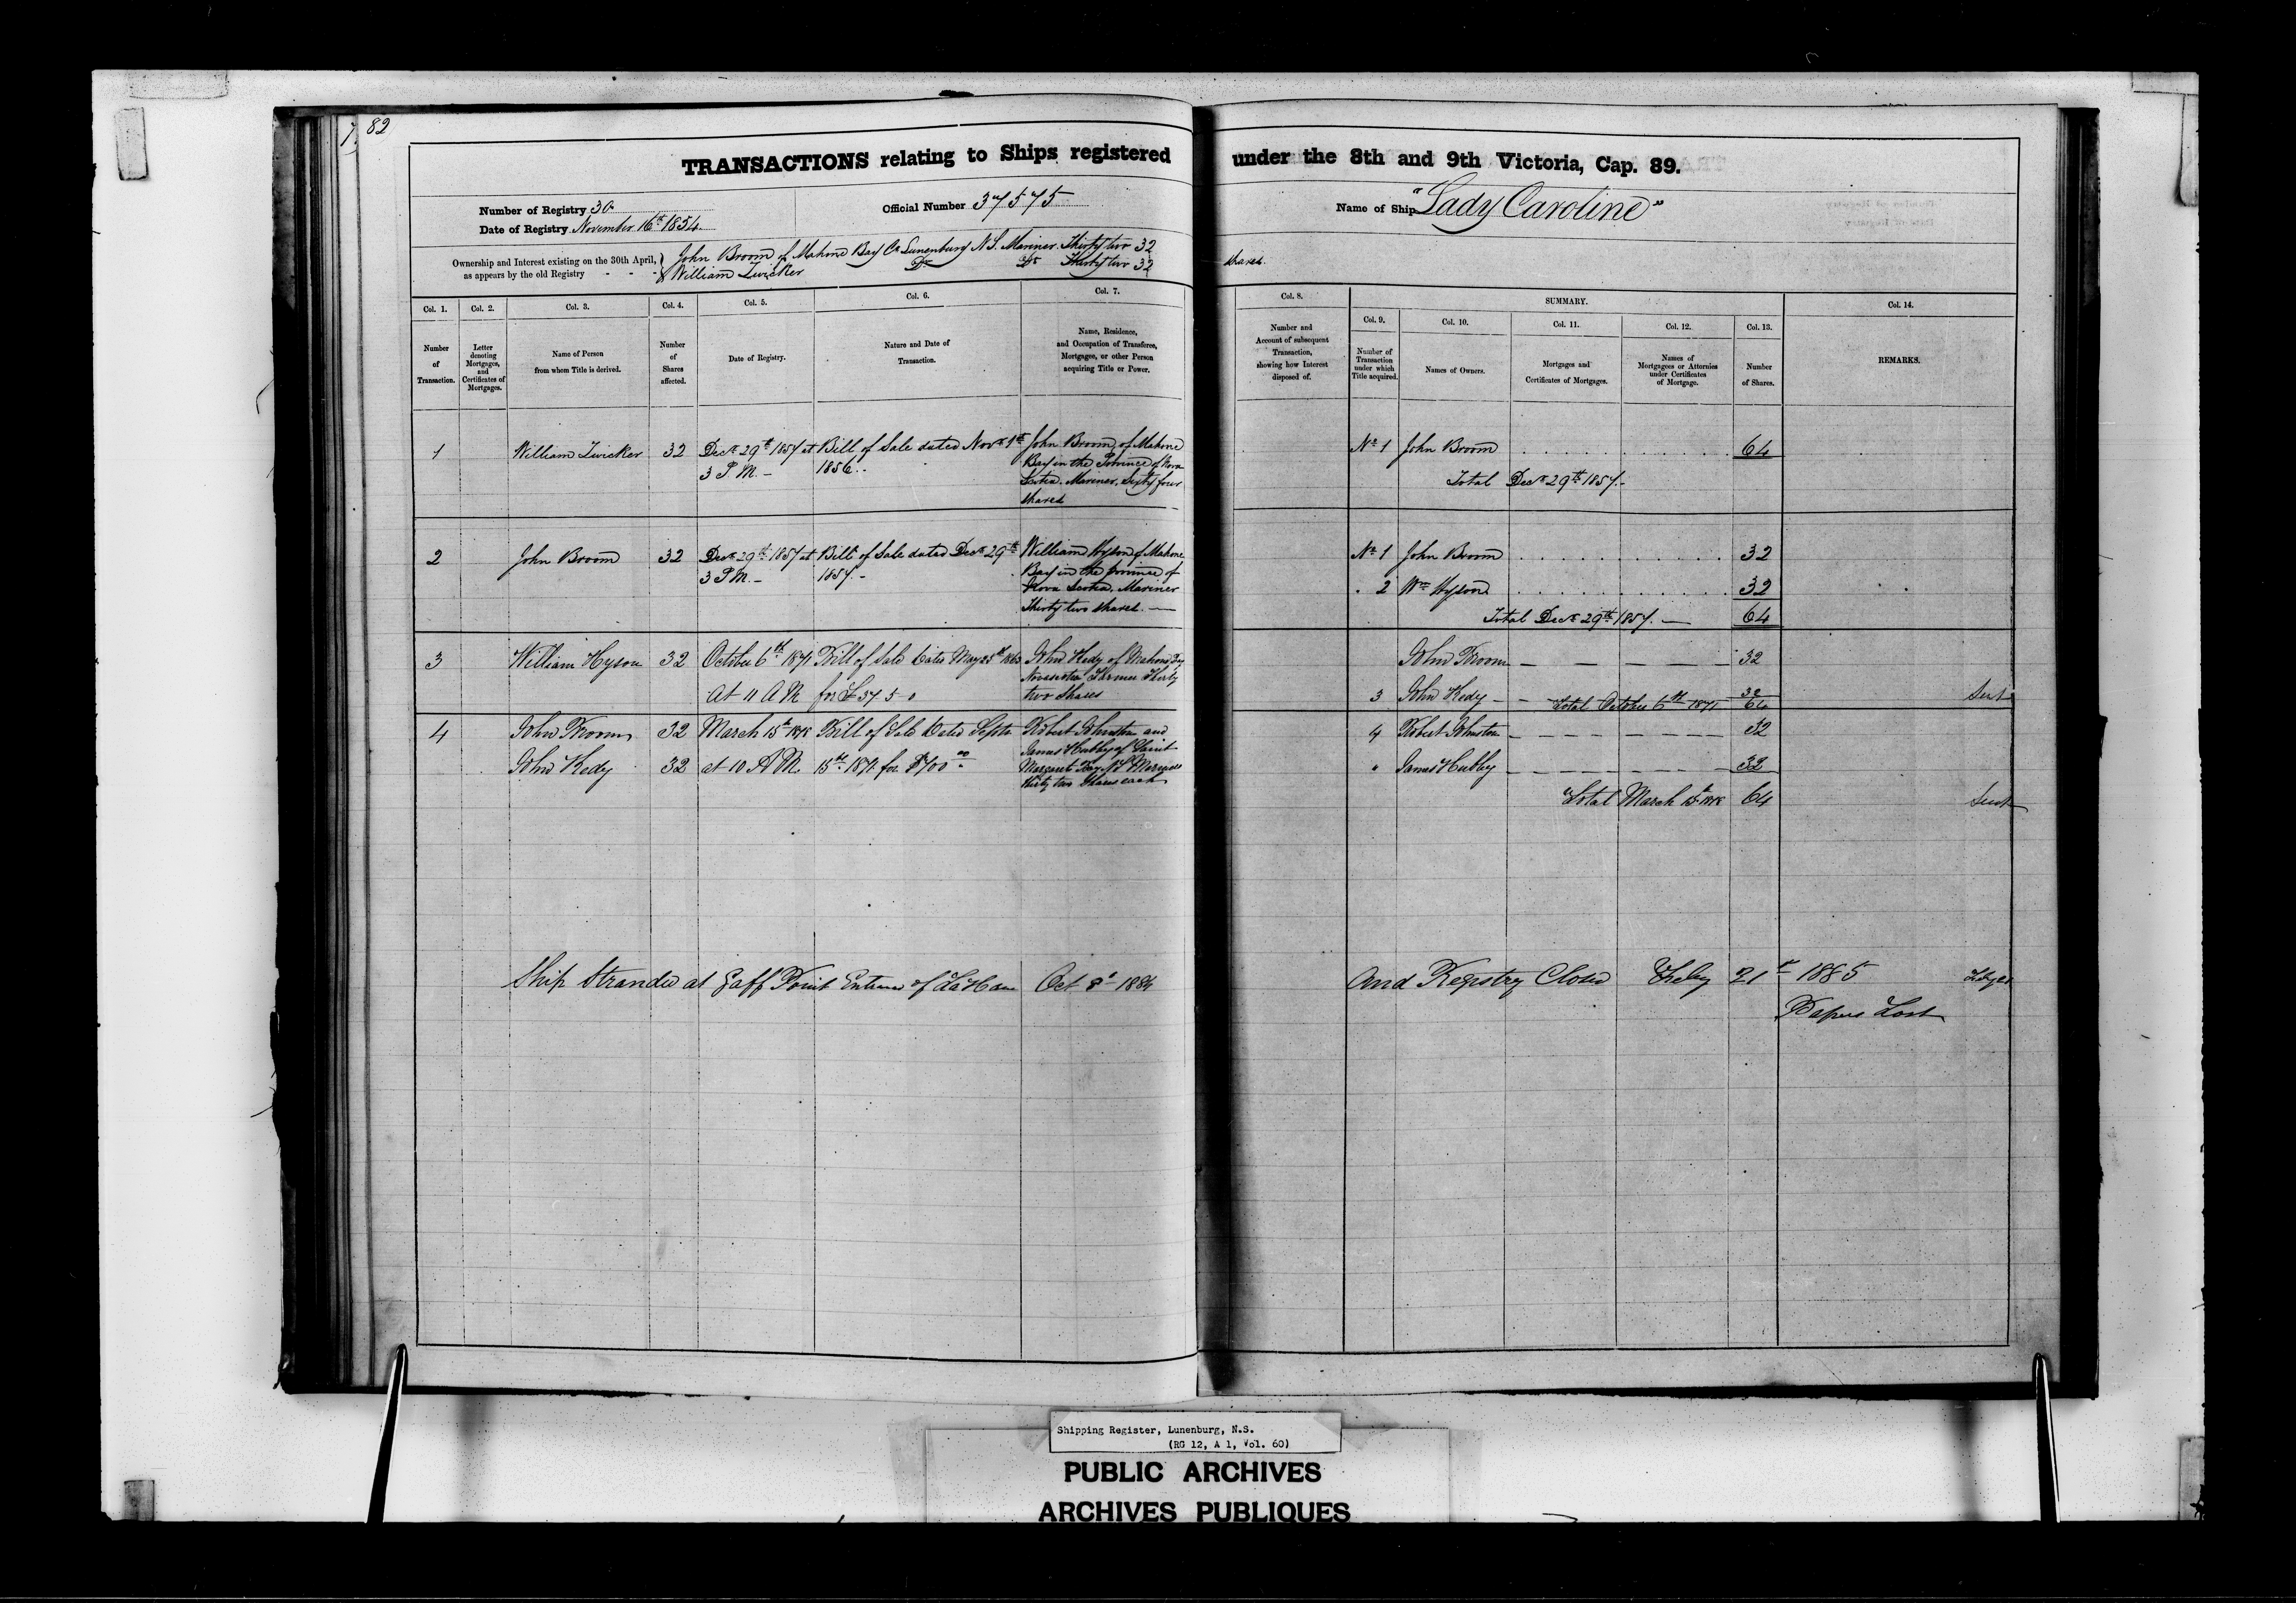 82
TRANSACTIONS relating to Ships registered under the 8th and 9th Victoria, Cap. 89.
Number of Registry 30
Date of Registry November 16th 1854
Official Number 37575
Name of Ship "Lady Caroline"
Ownership and Interest existing on the 30th April, as appears by the old Registry - - -
John Broom of Mahone Bay Co Lunenburg N.S. Mariner Thirty two 32 shares
William Zwicker Do Do Thirty two 32
Col. 1.
Number
of
Transaction.
Col. 2.
Letter
denoting
Mortgages,
and
Certificates of
Mortgages.
Col. 3.
Name of Person
from whom Title is derived.
Col. 4.
Number
of
Shares
affected.
Col. 5.
Date of Registry.
Col. 6.
Nature and Date of
Transaction.
Col. 7.
Name, Residence,
and Occupation of Transferee,
Mortgagee, or other Person
acquiring Title or Power.
Col. 8.
Number and
Account of subsequent
Transaction,
showing how Interest
disposed of.
SUMMARY.
Col. 9.
Number of
Transaction
under which
Title acquired.
Col. 10.
Names of Owners.
Col. 11.
Mortgages and
Certificates of Mortgages.
Col. 12.
Names of
Mortgagees or Attornies
under Certificates
of Mortgage.
Col. 13.
Number
of Shares.
Col. 14.
REMARKS.
1
William Zwicker
32
Decr 29th 1857 at
3 P.M. -
Bill of Sale dated Novr 1st
1856.
John Broom of Mahone
Bay in the Province of Nova
Scotia. Mariner. Sixty four
shares
No 1 John Broom 64
Total Decr 29th 1857.-
2
John Broom
32
Decr 29th 1857 at
3 P.M. -
Bill of Sale dated Decr 29th
1857. -
William Hyson of Mahone
Bay in the province of
Nova Scotia. Mariner
Thirty two shares. —
No 1 John Broom 32
" 2 Wm Hyson 32
Total Decr 29th 1857. — 64
3
William Hyson
32
October 6th 1871
At 11 A M
Bill of Sale Dated May 25th
for £ 37 5 0
John Kedy of Mahone Bay
Novascotia Farmer Thirty
two Shares
John Broom — — — — — 32
3 John Kedy - - Total October 6th 1871
32
64
Sent
4
John Broom 32
John Kedy 32
March 15th
at 10 A M
Bill of Sale Dated Septr
15th 1871 for
Robert Johnston and
James Hubley of Saint
Margaret Bay N S
thirty two Shares each
4 Robert Johnston 32
" James Hubley 32
Total March 15th 64
Sent
Ship Stranded at Gaff Point Entrance of LaHave Oct 8th 1884 And Registry Closed Feby 21st 1885
Papers Lost
Shipping Register, Lunenburg, N.S.
(RG 12, A 1, Vol. 60)
PUBLIC ARCHIVES
ARCHIVES PUBLIQUES